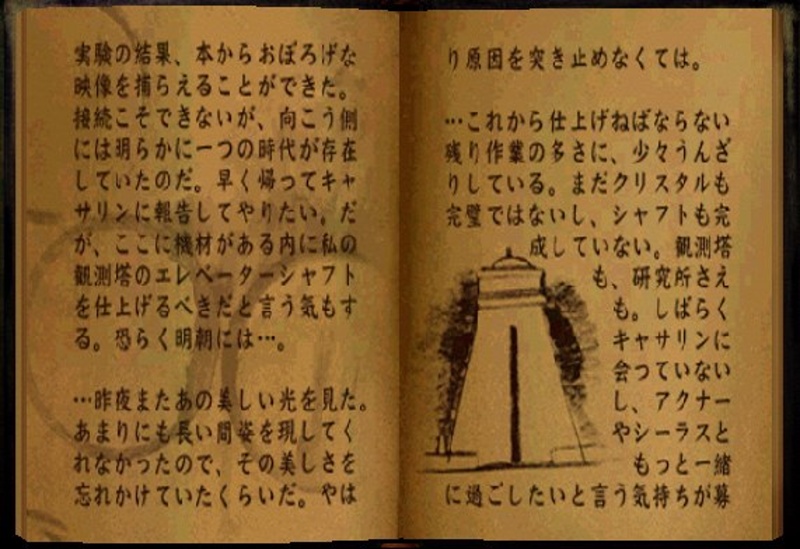 実験の結果、本からおぼろげな
映像を捕らえることができた。
接続こそできないが、向こう側
には明らかに一つの時代が存在
していたのだ。早く帰ってキャ
サリンに報告してやりたい。だ
が、ここに機材がある内に私の
観測塔のエレベーターシャフト
を仕上げるべきだと言う気もす
る。恐らく明朝には…。
…昨夜またあの美しい光を見た。
あまりにも長い間姿を現してく
れなかったので、その美しさを
忘れかけていたくらいだ。やは
り原因を突き止めなくては。
…これから仕上げねばならない
残り作業の多さに、少々うんざ
りしている。まだクリスタルも
完璧ではないし、シャフトも完
成していない。観測塔
も、研究所さえ
も。しばらく
キャサリンに
会っていない
し、アクナー
やシーラスと
もっと一緒
に過ごしたいと言う気持ちが募